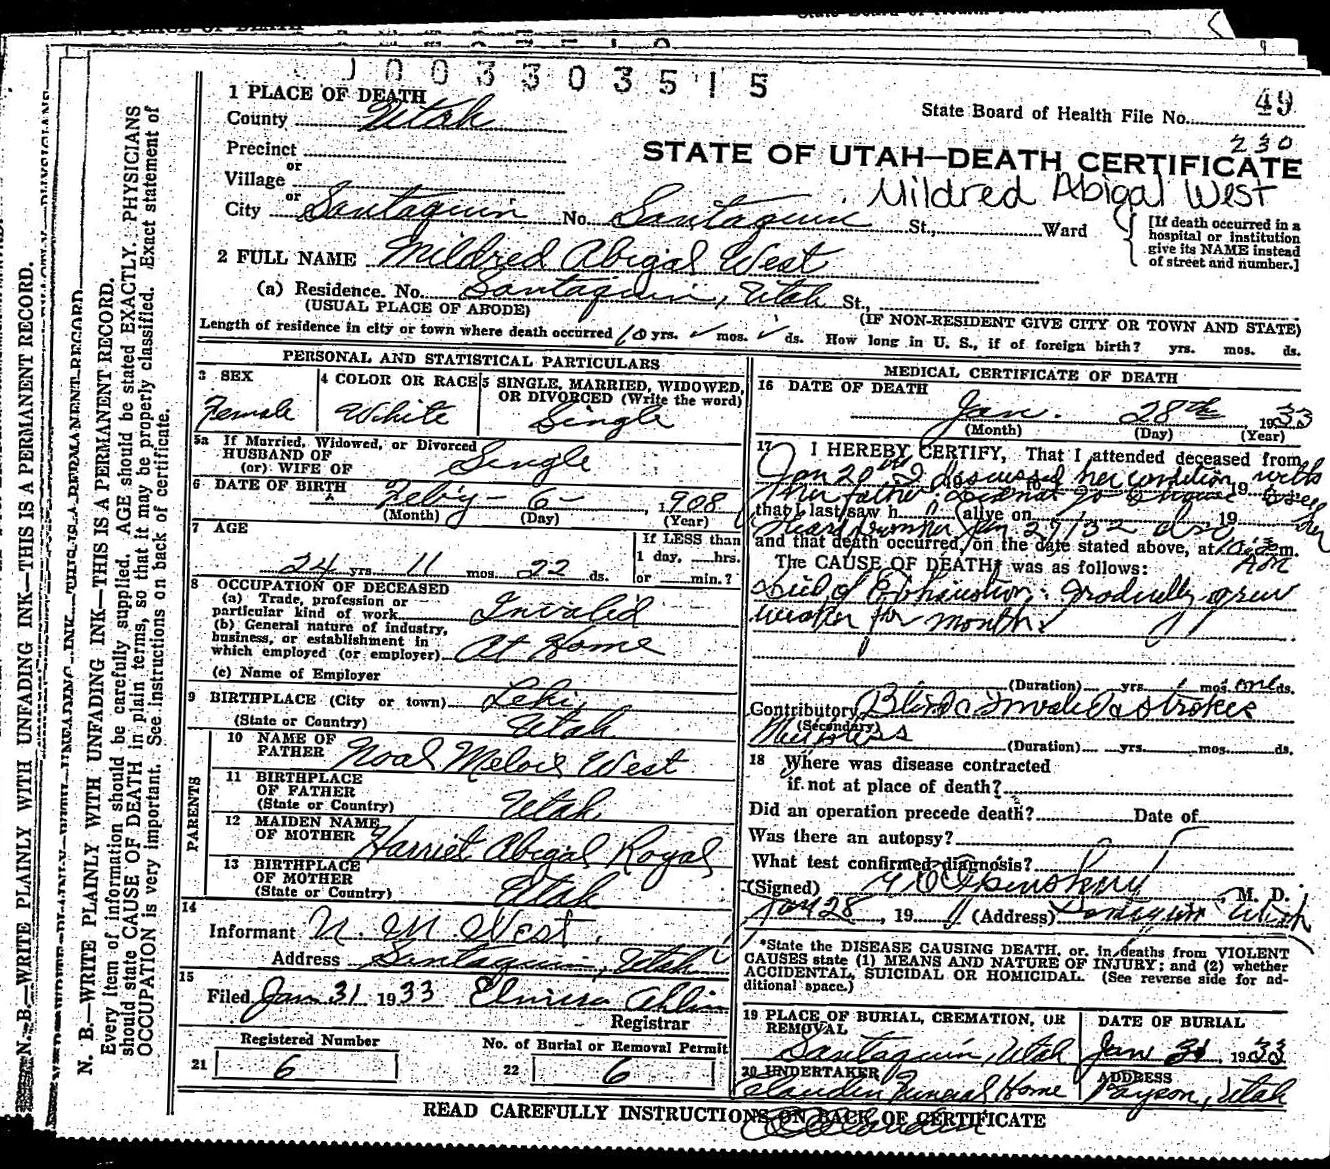 1003303515
State Board of Health File No. 49
230
STATE OF UTAH—DEATH CERTIFICATE
Mildred Abigal West
1 PLACE OF DEATH
County Utah
Precinct
or
Village
or
City Santaquin No. Santaquin St., Ward
[If death occurred in a
hospital or institution
give its NAME instead
of street and number.]
2 FULL NAME Mildred Abigal West
(a) Residence. No. Santaquin, Utah St.,
(USUAL PLACE OF ABODE) (IF NON-RESIDENT GIVE CITY OR TOWN AND STATE)
Length of residence in city or town where death occurred 10 yrs. mos. ds. How long in U. S., if of foreign birth? yrs. mos. ds.
PERSONAL AND STATISTICAL PARTICULARS
3 SEX
Female
4 COLOR OR RACE
White
5 SINGLE, MARRIED, WIDOWED,
OR DIVORCED (Write the word)
Single
5a If Married, Widowed, or Divorced
HUSBAND OF
(or) WIFE OF Single
6 DATE OF BIRTH Feby - 6 - , 1908
(Month) (Day) (Year)
7 AGE
24 yrs. 11 mos. 22 ds.
If LESS than
1 day, hrs.
or min.?
8 OCCUPATION OF DECEASED
(a) Trade, profession or
particular kind of work Invalid
(b) General nature of industry,
business, or establishment in
which employed (or employer) At Home
(c) Name of Employer
9 BIRTHPLACE (City or town) Lehi
(State or Country) Utah
PARENTS
10 NAME OF
FATHER Noal Melvie West
11 BIRTHPLACE
OF FATHER
(State or Country) Utah
12 MAIDEN NAME
OF MOTHER Harriet Abigal Royal
13 BIRTHPLACE
OF MOTHER
(State or Country) Utah
14
Informant N. M. West
Address Santaquin, Utah
15
Filed Jan 31 1933 Ahlin
Registrar
21 Registered Number 6
22 No. of Burial or Removal Permit 6
MEDICAL CERTIFICATE OF DEATH
16 DATE OF DEATH
Jan. 28th 1933
(Month) (Day) (Year)
17 I HEREBY CERTIFY, That I attended deceased from
Jan 20th I discussed her condition with
her father. Did not
that I last saw h alive on 19
and that death occurred, on the date stated above, at m.
The CAUSE OF DEATH* was as follows:
Died of Exhaustion: Gradually grew
weaker for months
(Duration) yrs. mos. ds.
Contributory Blind Invalid
(Secondary)
(Duration) yrs. mos. ds.
18 Where was disease contracted
if not at place of death?
Did an operation precede death? Date of
Was there an autopsy?
What test confirmed diagnosis?
(Signed) M. D.
Jan 28, 19 (Address) Santaquin Utah
*State the DISEASE CAUSING DEATH, or, in deaths from VIOLENT
CAUSES state (1) MEANS AND NATURE OF INJURY; and (2) whether
ACCIDENTAL, SUICIDAL OR HOMICIDAL. (See reverse side for ad-
ditional space.)
19 PLACE OF BURIAL, CREMATION, OR
REMOVAL
Santaquin, Utah
DATE OF BURIAL
Jan 31, 1933
20 UNDERTAKER
Claudin Funeral Home
ADDRESS
Payson, Utah
READ CAREFULLY INSTRUCTIONS ON BACK OF CERTIFICATE
N. B.—WRITE PLAINLY WITH UNFADING INK—THIS IS A PERMANENT RECORD.
N. B.—WRITE PLAINLY WITH UNFADING INK—THIS IS A PERMANENT RECORD.
Every item of information should be carefully supplied. AGE should be stated EXACTLY. PHYSICIANS
should state CAUSE OF DEATH in plain terms, so that it may be properly classified. Exact statement of
OCCUPATION is very important. See instructions on back of certificate.